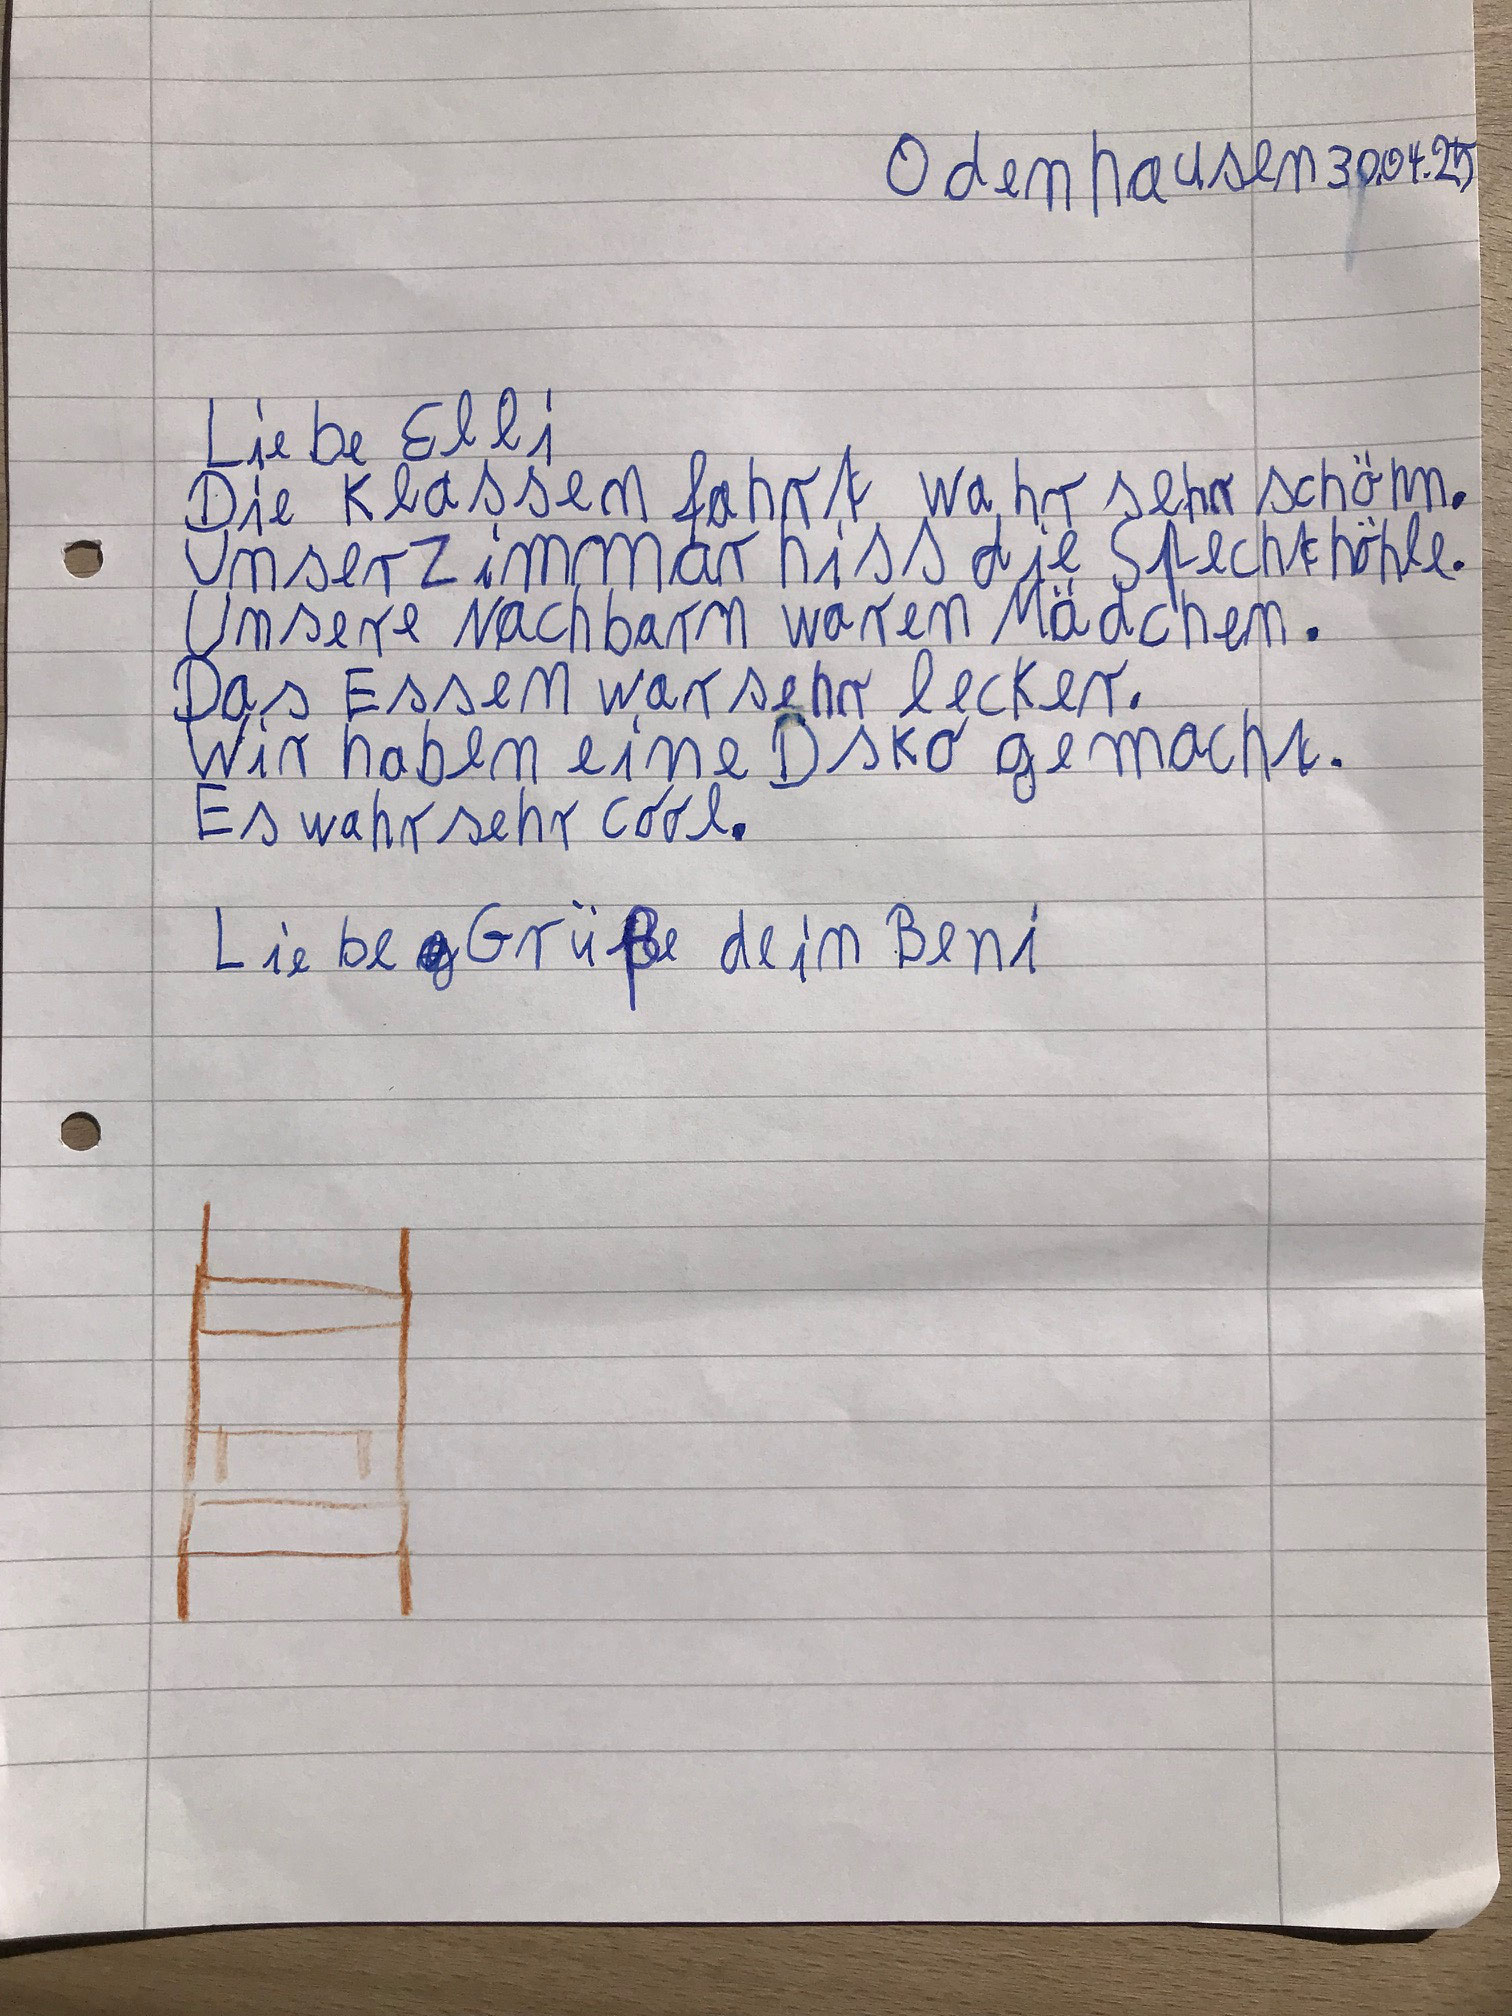 Odenhausen 30.04.25
Liebe Elli
Die Klassen fahrt wahr sehr schön.
Unser Zimmar hiss die Spechthöhle.
Unsere Nachbarn waren Mädchen.
Das Essen war sehr lecker.
Wir haben eine Dsko gemacht.
Es wahr sehr cool.
Liebe Grüße dein Beni